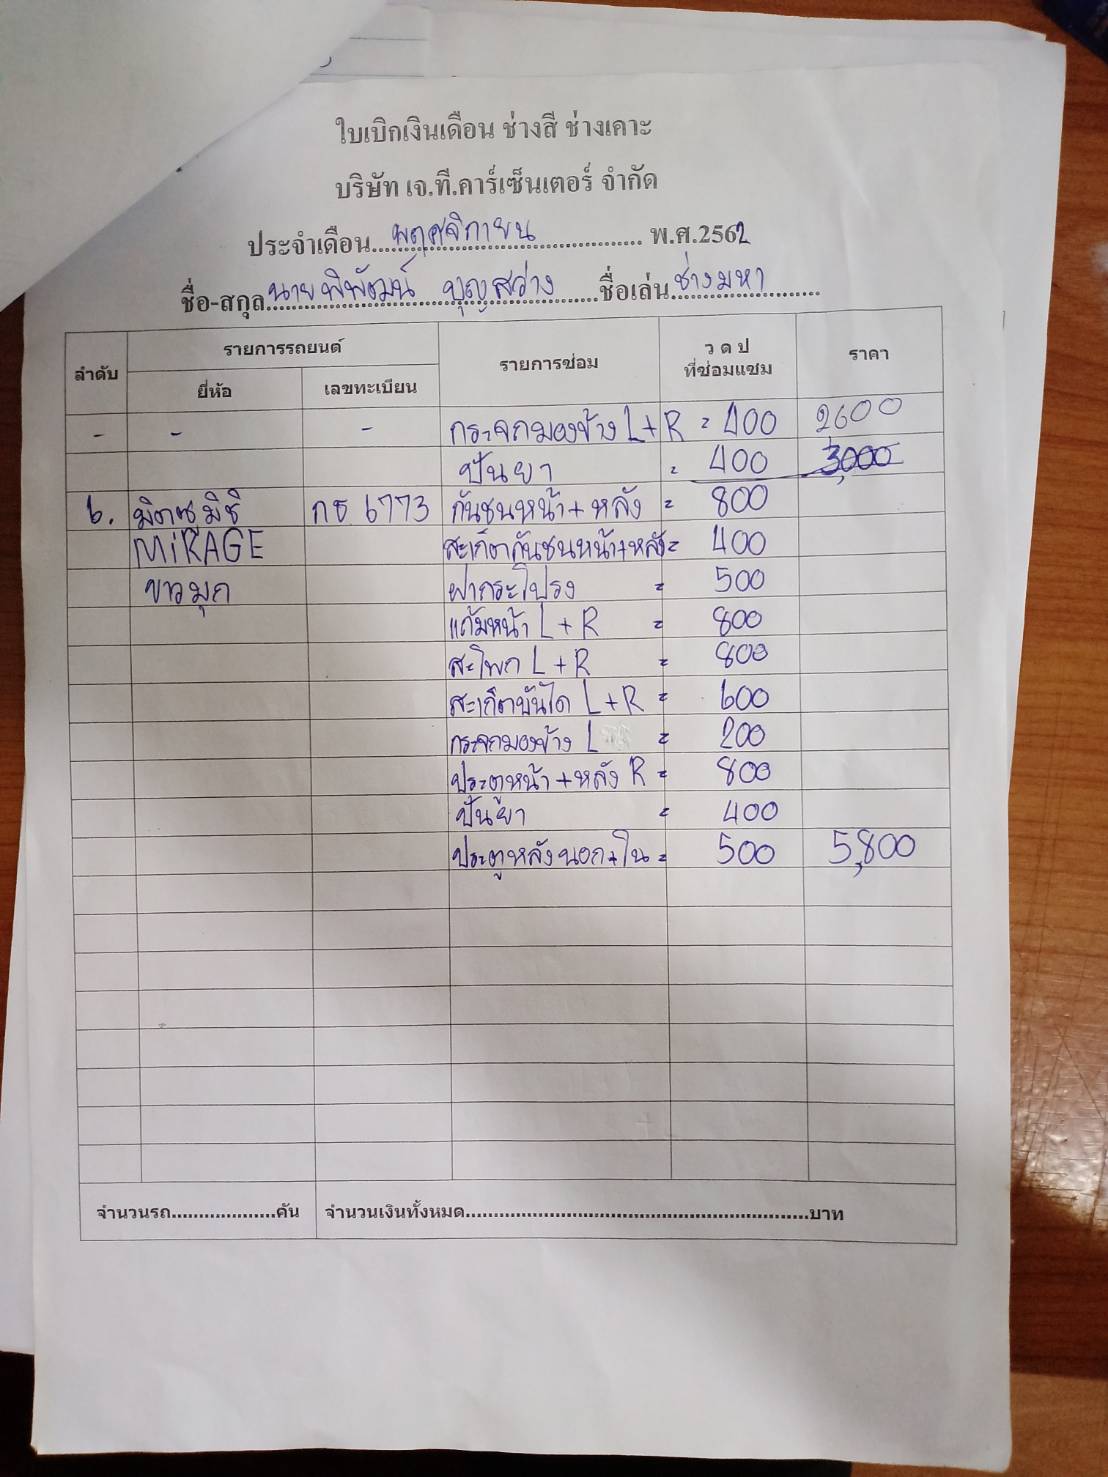 ใบเบิกเงินเดือน ช่างสี ช่างเคาะ
บริษัท เจ.ที.คาร์เซ็นเตอร์ จำกัด
ประจำเดือน...พฤศจิกายน... พ.ศ.2562
ชื่อ-สกุล นายพิพัฒน์ บุญสว่าง ชื่อเล่น ช่างมหา
ลำดับ รายการรถยนต์ รายการซ่อม ว ด ป ที่ซ่อมแซม ราคา
ยี่ห้อ เลขทะเบียน
- - - กระจกมองข้าง L+R = 400 2600
ปั่นยา = 400 3,000
6. มิตซูมิชิ กธ 6773 กันชนหน้า+หลัง = 800
MiRAGE สะเก็ตกันชนหน้า+หลัง = 400
ขาวมุก ฝากระโปรง = 500
แก้มหน้า L+R = 800
สะโพก L+R = 800
สะเก็ตบันได L+R = 600
กระจกมองข้าง L = 200
ประตูหน้า+หลัง R = 800
ปั่นยา = 400
ประตูหลังนอก+ใน = 500 5,800
จำนวนรถ...................คัน จำนวนเงินทั้งหมด...............................................................บาท